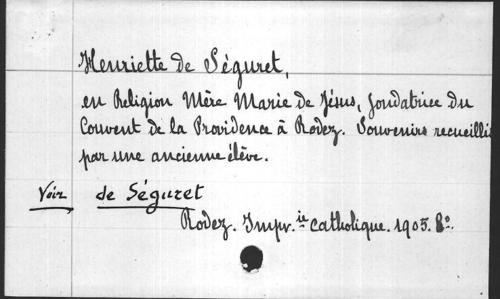 Henriette de Séguret,
en Religion Mère Marie de Jésus, fondatrice du
Couvent de la Providence à Rodez. Souvenirs recueillis
par une ancienne élève.
Voir de Séguret
Rodez. Impr.ie catholique. 1905. 8o.